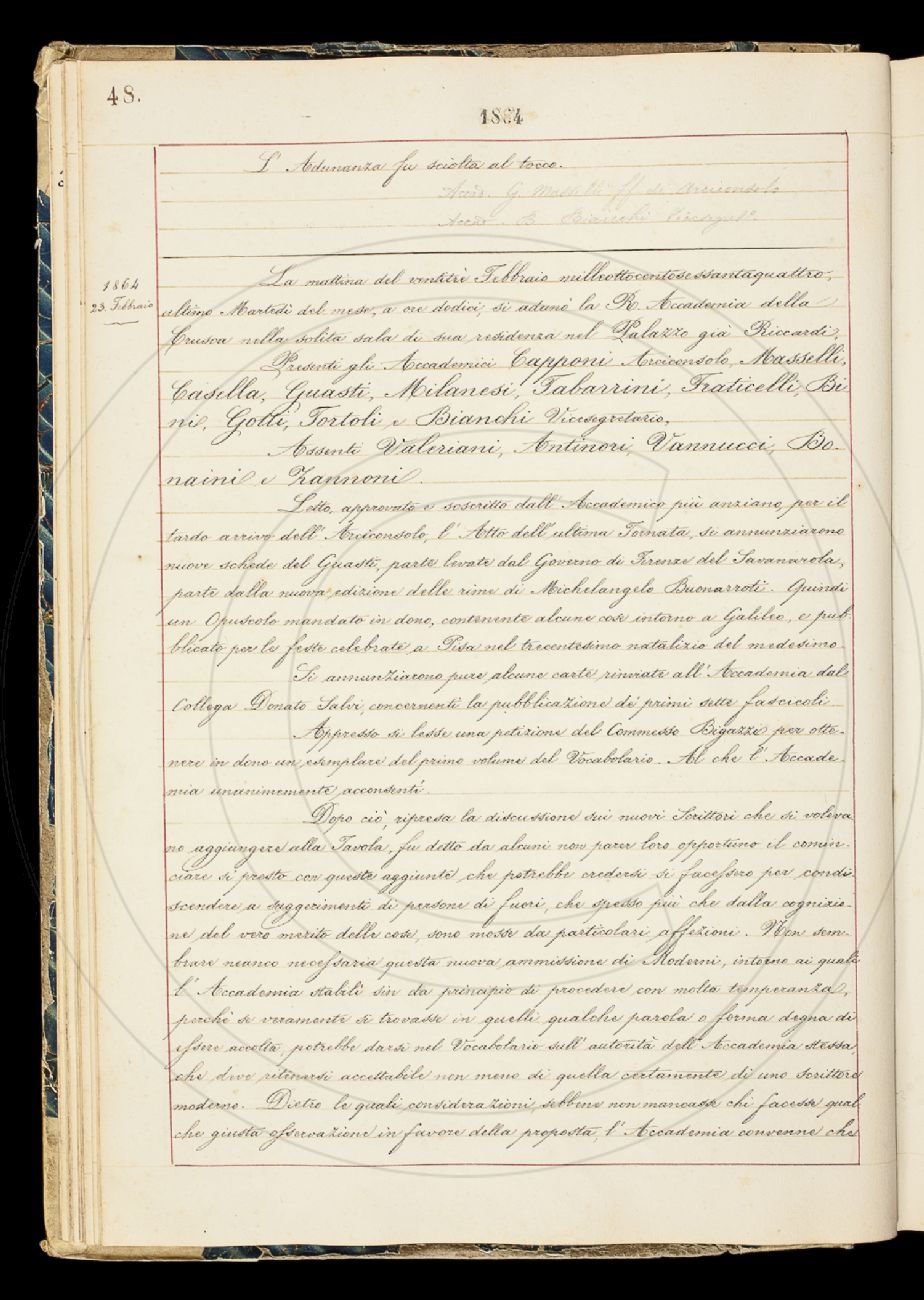 48.
1864
L' Adunanza fu sciolta al tocco.
Accad. G. Masselli ff. di Arciconsolo
Accad. B. Bianchi Vicesegret.º
1864
23. Febbraio
La mattina del ventitrè Febbraio milleottocentosessantaquattro,
ultimo Martedì del mese, a ore dodici, si adunò la R. Accademia della
Crusca nella solita sala di sua residenza nel Palazzo già Riccardi.
Presenti gli Accademici Capponi Arciconsolo, Masselli,
Casella, Guasti, Milanesi, Tabarrini, Fraticelli, Bi
ni, Gotti, Tortoli e Bianchi Vicesegretario.
Assenti Valeriani, Antinori, Vannucci, Bo-
naini e Zannoni.
Letto, approvato e soscritto dall' Accademico più anziano, per il
tardo arrivo dell' Arciconsolo, l' Atto dell' ultima Tornata, si annunziarono
nuove schede del Guasti, parte levate dal Governo di Firenze del Savanarola,
parte dalla nuova edizione delle rime di Michelangelo Buonarroti. Quindi
un Opuscolo mandato in dono, contenente alcune cose intorno a Galileo, e pub-
blicato per le feste celebrate a Pisa nel trecentesimo natalizio del medesimo.
Si annunziarono pure alcune carte rinviate all' Accademia dal
Collega Donato Salvi, concernenti la pubblicazione de' primi sette fascicoli
Appresso si lesse una petizione del Commesso Bigazzi per otte-
nere in dono un esemplare del primo volume del Vocabolario. Al che l' Accade-
mia unanimemente acconsentì.
Dopo ciò, ripresa la discussione sui nuovi Scrittori che si voleva
no aggiungere alla Tavola, fu detto da alcuni non parer loro opportuno il comin-
ciare sì presto con queste aggiunte, che potrebbe credersi si facessero per condi-
scendere a suggerimenti di persone di fuori, che spesso più che dalla cognizio-
ne del vero merito delle cose, sono mosse da particolari affezioni. Non sem-
brare neanco necessaria questa nuova ammissione di Moderni, intorno ai quali
l' Accademia stabilì sin da principio di procedere con molta temperanza,
perchè se veramente si trovasse in quelli qualche parola o forma degna di
essere accolta, potrebbe darsi nel Vocabolario sull' autorità dell' Accademia stessa,
che deve ritenersi accettabile non meno di quella certamente di uno scrittore
moderno. Dietro le quali considerazioni, sebbene non mancasse chi facesse qual
che giusta osservazione in favore della proposta, l' Accademia convenne che